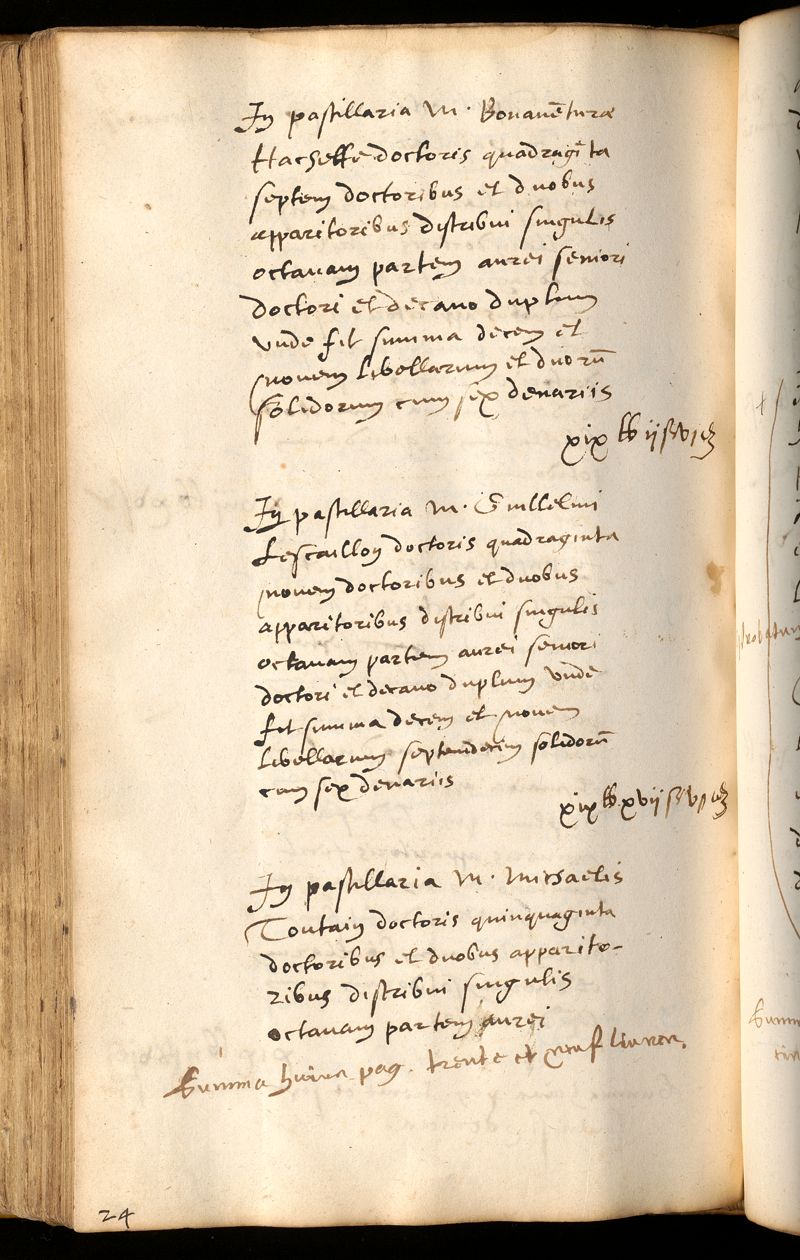 In pastillaria M. Bonauēturæ
Hacheffe doctoris quadragīta
septem doctoribus et duobus
apparitoribus distribui singulis
octauam partem aurei seniori
doctori et decano duplum
vnde fit summa decem et
nouem libellarum et duorū
solidorum cum sex denariis
xix ℔ ij s vj d
In pastillaria M. Guillelmi
Lescaillon doctoris quadraginta
nouem doctoribus et duobus
apparitoribus distribui singulis
octauam partem aurei seniori
doctori et decano duplum vnde
fit summa decem et nouem
libellarum septemdecim solidorū
cum sex denariis
xix ℔ xvij s vj d
In pastillaria M. Michaelis
Toutain doctoris quinquaginta
doctoribus et duobus apparito-
ribus distribui singulis
octauam partem aurei
Summa huius pag. trente et neuf liures.
24